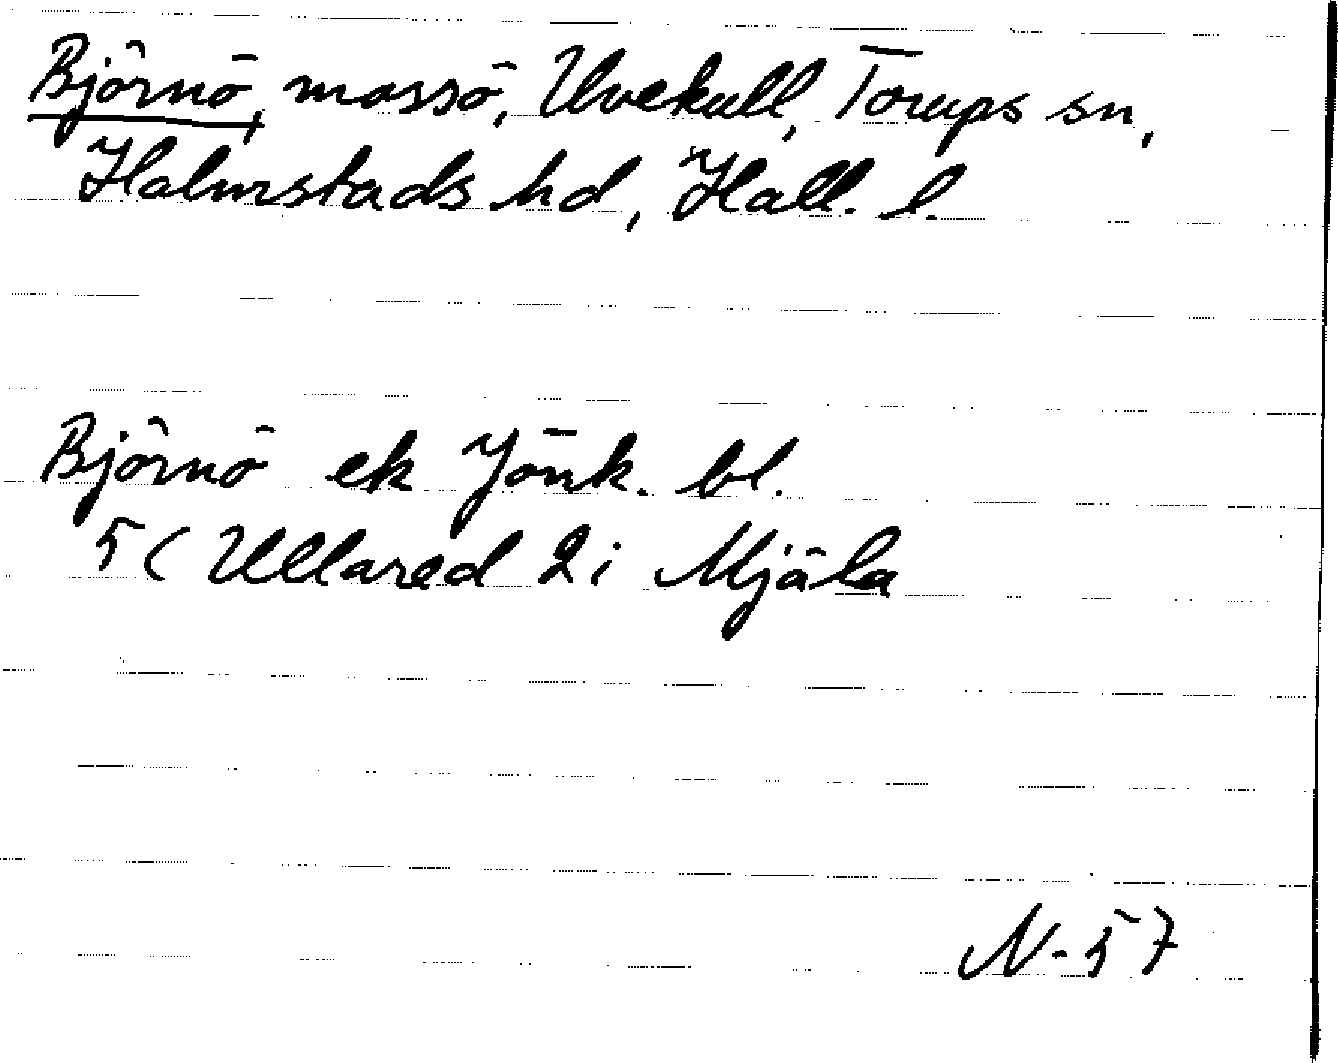 Björnö, mossö, Uvekull, Torups sn,
Halmstads hd, Hall. l.
Björnö ek Jönk. bl.
5C Ullared 2i Mjäla
N-57